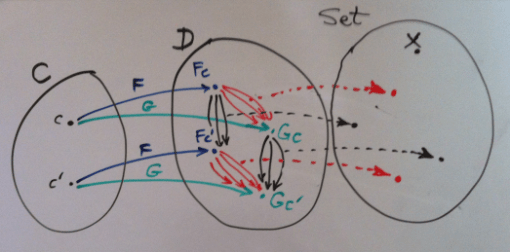 Set
C
D
X
F
Fc
c
G
Gc
F
Fc'
c'
G
Gc'